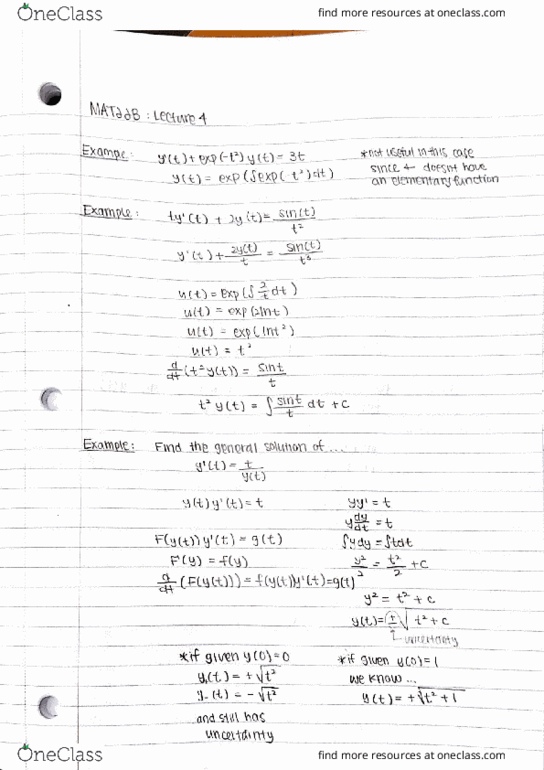 OneClass
find more resources at oneclass.com
MAT22B : Lecture 4
Example: y'(t) + exp(-t²) y(t) = 3t
y(t) = exp(∫exp(-t²)dt)
*not useful in this case
since it doesnt have
an elementary function
Example: ty'(t) + 2y(t) = sin(t)/t²
y'(t) + 2y(t)/t = sin(t)/t³
u(t) = exp(∫ 2/t dt)
u(t) = exp(2lnt)
u(t) = exp(lnt²)
u(t) = t²
d/dt (t²y(t)) = sint/t
t² y(t) = ∫ sint/t dt + c
Example: Find the general solution of ...
y'(t) = t/y(t)
y(t) y'(t) = t
F(y(t)) y'(t) = g(t)
F'(y) = f(y)
d/dt (F(y(t))) = f(y(t))y'(t) = g(t)
yy' = t
y dy/dt = t
∫ydy = ∫tdt
y²/2 = t²/2 + c
y² = t² + c
y(t) = ± √t² + c
uncertainty
*if given y(0) = 0
y₊(t) = +√t²
y₋(t) = -√t²
and still has
uncertainty
*if given y(0) = 1
we know ...
y(t) = +√t² + 1
OneClass
find more resources at oneclass.com